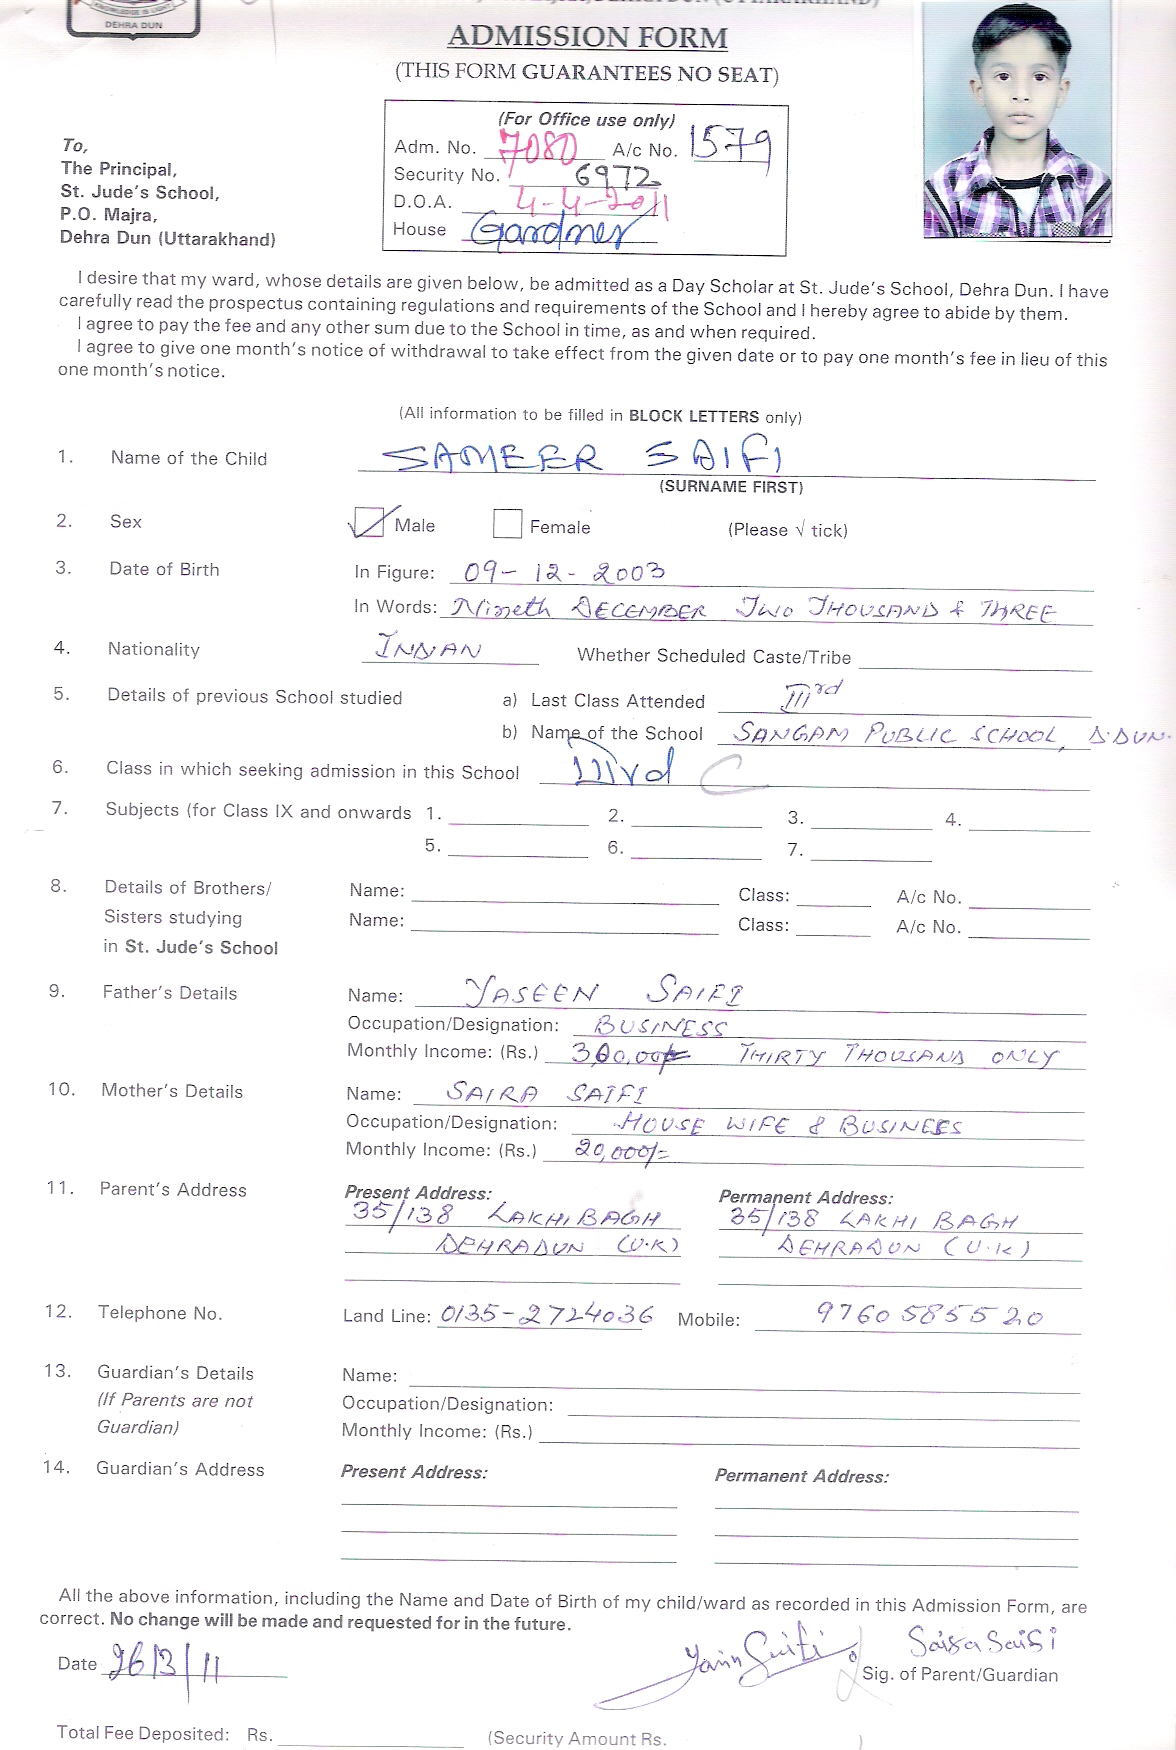 DEHRA DUN
ADMISSION FORM
(THIS FORM GUARANTEES NO SEAT)
(For Office use only)
Adm. No. 7080 A/c No. 1579
Security No. 6972
D.O.A. 4-4-2011
House Gardner
To,
The Principal,
St. Jude's School,
P.O. Majra,
Dehra Dun (Uttarakhand)
I desire that my ward, whose details are given below, be admitted as a Day Scholar at St. Jude's School, Dehra Dun. I have
carefully read the prospectus containing regulations and requirements of the School and I hereby agree to abide by them.
I agree to pay the fee and any other sum due to the School in time, as and when required.
I agree to give one month's notice of withdrawal to take effect from the given date or to pay one month's fee in lieu of this
one month's notice.
(All information to be filled in BLOCK LETTERS only)
1. Name of the Child SAMEER SAIFI
(SURNAME FIRST)
2. Sex Male Female (Please √ tick)
3. Date of Birth In Figure: 09-12-2003
In Words: Nineth DECEMBER TWO THOUSAND & THREE
4. Nationality INDIAN Whether Scheduled Caste/Tribe
5. Details of previous School studied a) Last Class Attended IIIrd
b) Name of the School SANGAM PUBLIC SCHOOL, D.DUN.
6. Class in which seeking admission in this School IIIrd C
7. Subjects (for Class IX and onwards 1. 2. 3. 4.
5. 6. 7.
8. Details of Brothers/ Name: Class: A/c No.
Sisters studying Name: Class: A/c No.
in St. Jude's School
9. Father's Details Name: YASEEN SAIFI
Occupation/Designation: BUSINESS
Monthly Income: (Rs.) THIRTY THOUSAND ONLY
10. Mother's Details Name: SAIRA SAIFI
Occupation/Designation: HOUSE WIFE & BUSINEES
Monthly Income: (Rs.) 20,000/=
11. Parent's Address Present Address: Permanent Address:
35/138 LAKHI BAGH 35/138 LAKHI BAGH
DEHRADUN (U.K) DEHRADUN (U.K)
12. Telephone No. Land Line: 0135-2724036 Mobile: 9760585520
13. Guardian's Details Name:
(If Parents are not Occupation/Designation:
Guardian) Monthly Income: (Rs.)
14. Guardian's Address Present Address: Permanent Address:
All the above information, including the Name and Date of Birth of my child/ward as recorded in this Admission Form, are
correct. No change will be made and requested for in the future.
Date 26/3/11 Saira Saifi
Sig. of Parent/Guardian
Total Fee Deposited: Rs. (Security Amount Rs. )